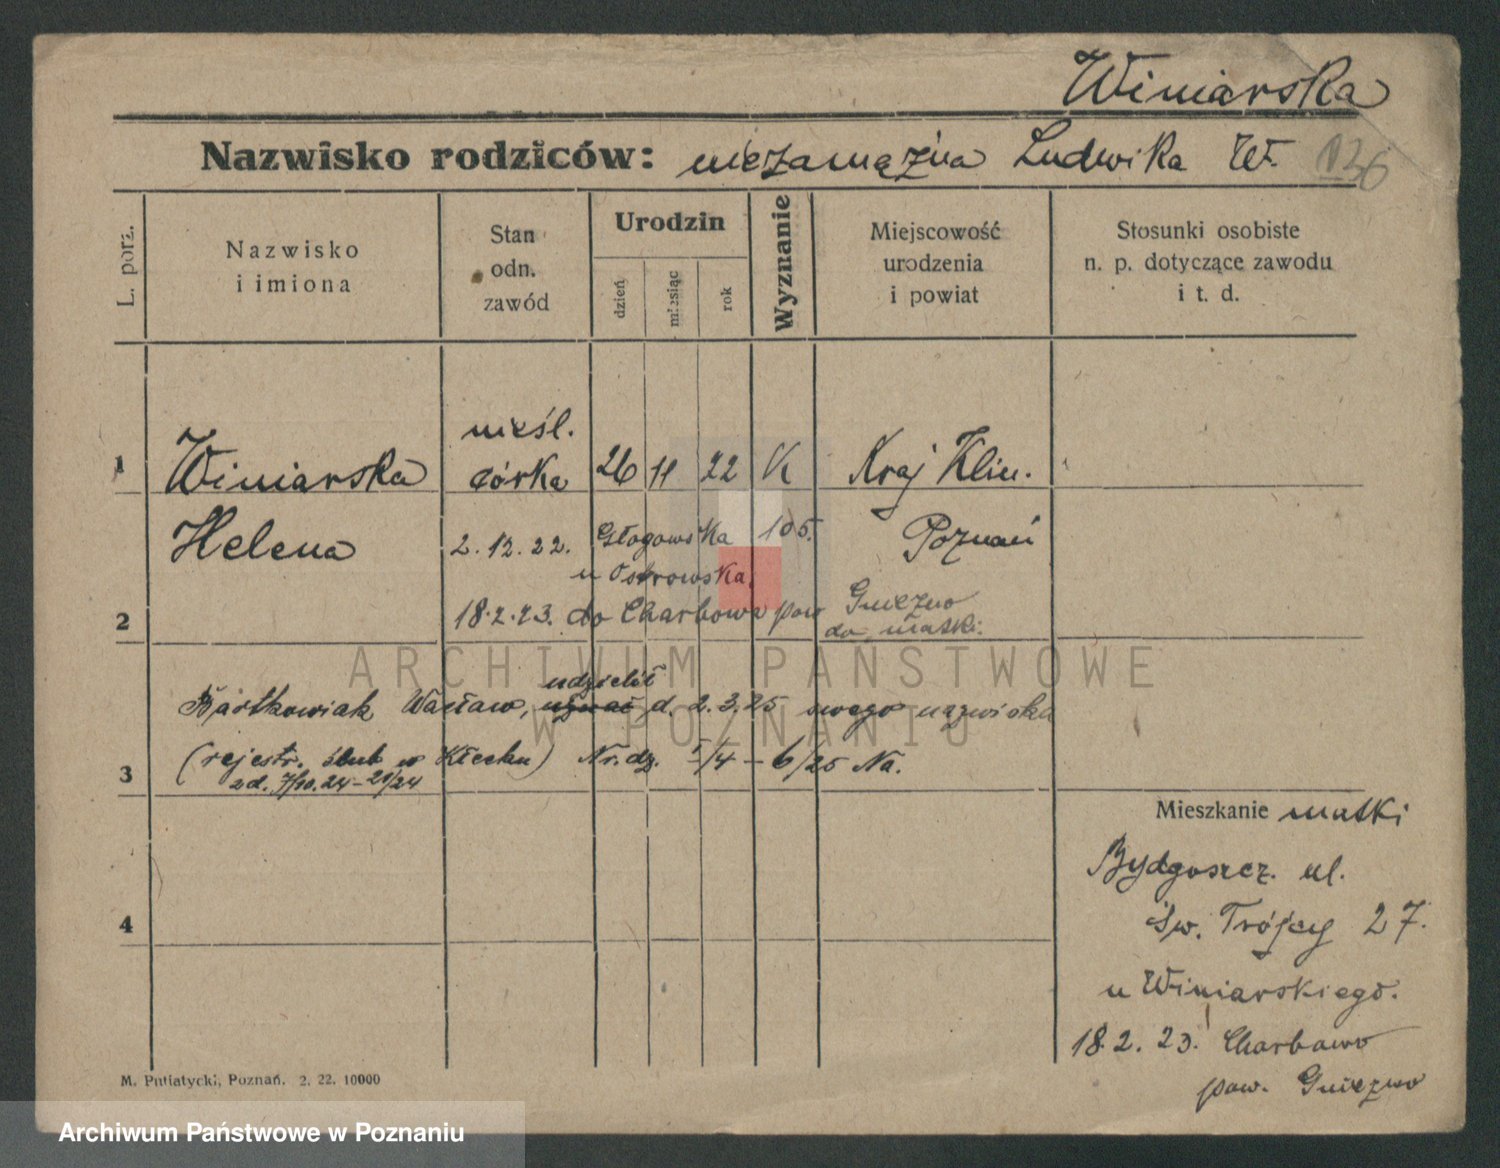 Winiarska
Nazwisko rodziców: niezamężna Ludwika W. 136
L. porz.
Nazwisko
i imiona
Stan
odn.
zawód
Urodzin
dzień
miesiąc
rok
Wyznanie
Miejscowość
urodzenia
i powiat
Stosunki osobiste
n. p. dotyczące zawodu
i t. d.
nieśl.
1 Winiarska córka 26 11 22 K Kraj Klin.
Helena 2.12.22. Głogowska 105. Poznań
u Ostrowska.
2 18.2.23. do Charbowa pow Gniezno
do matki.
udzielił
Bartkowiak Wacław, używać d. 2.3.25 swego nazwiska
3 (rejestr. ślub w Kłecku) Nr. dz. I/4 - 6/25 Na.
zd. 7/10.24 - 21/24
Mieszkanie matki
Bydgoszcz. ul.
4 Św. Trójcy 27.
u Winiarskiego.
18.2.23. Charbowo
pow. Gniezno
M. Putiatycki, Poznań. 2. 22. 10000
ARCHIWUM PAŃSTWOWE
W POZNANIU
Archiwum Państwowe w Poznaniu